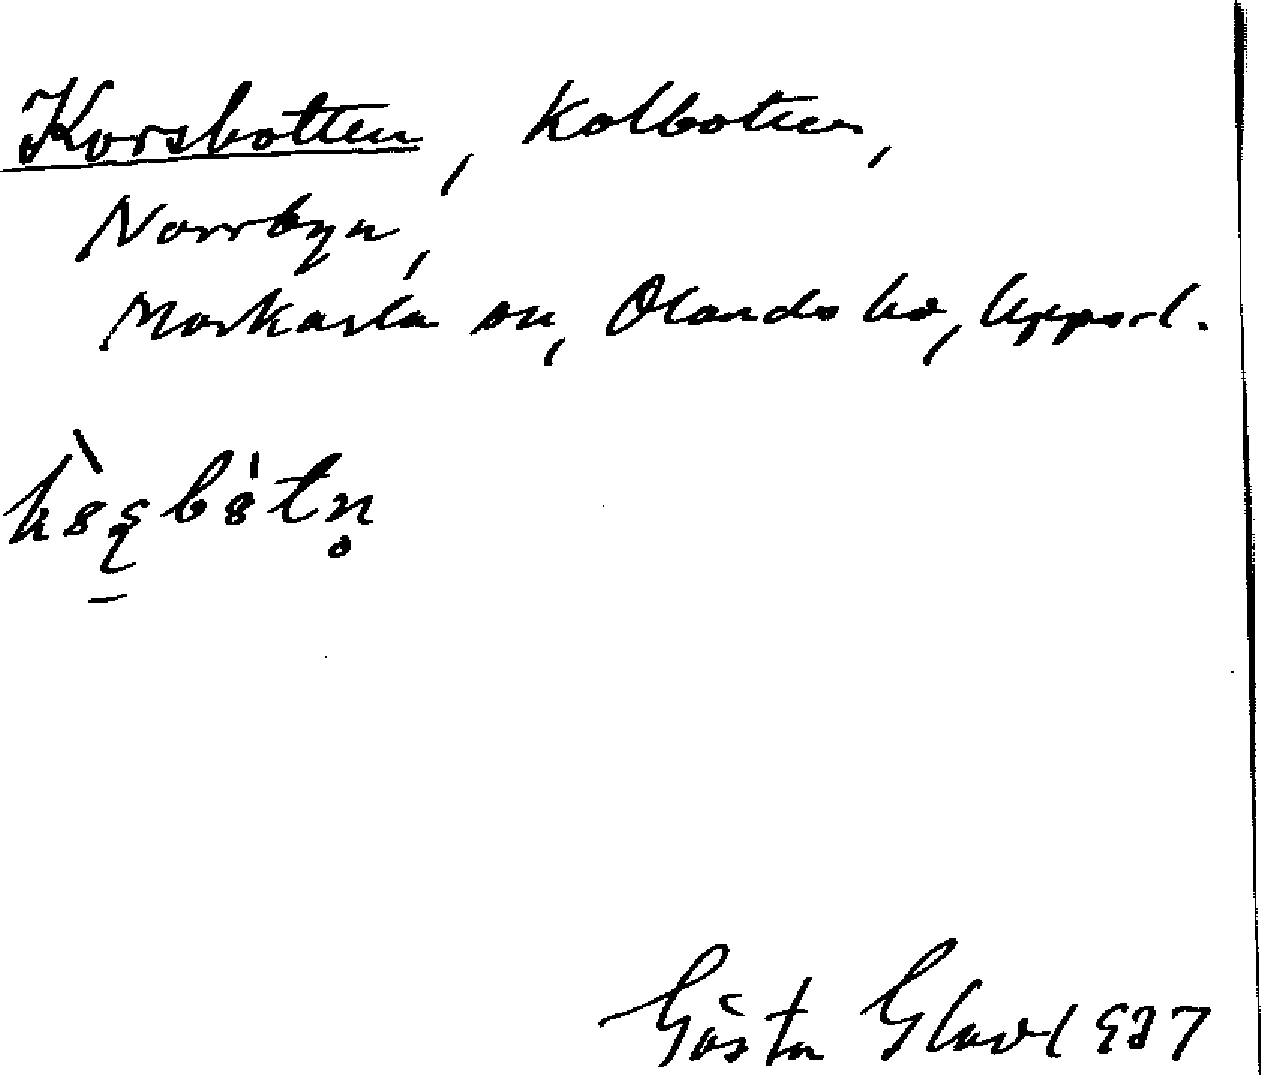 Korsbotten, kolbotten,
Norrbyn,
Morkarla sn, Olands hd, Uppsl.
Gösta Glad 1937